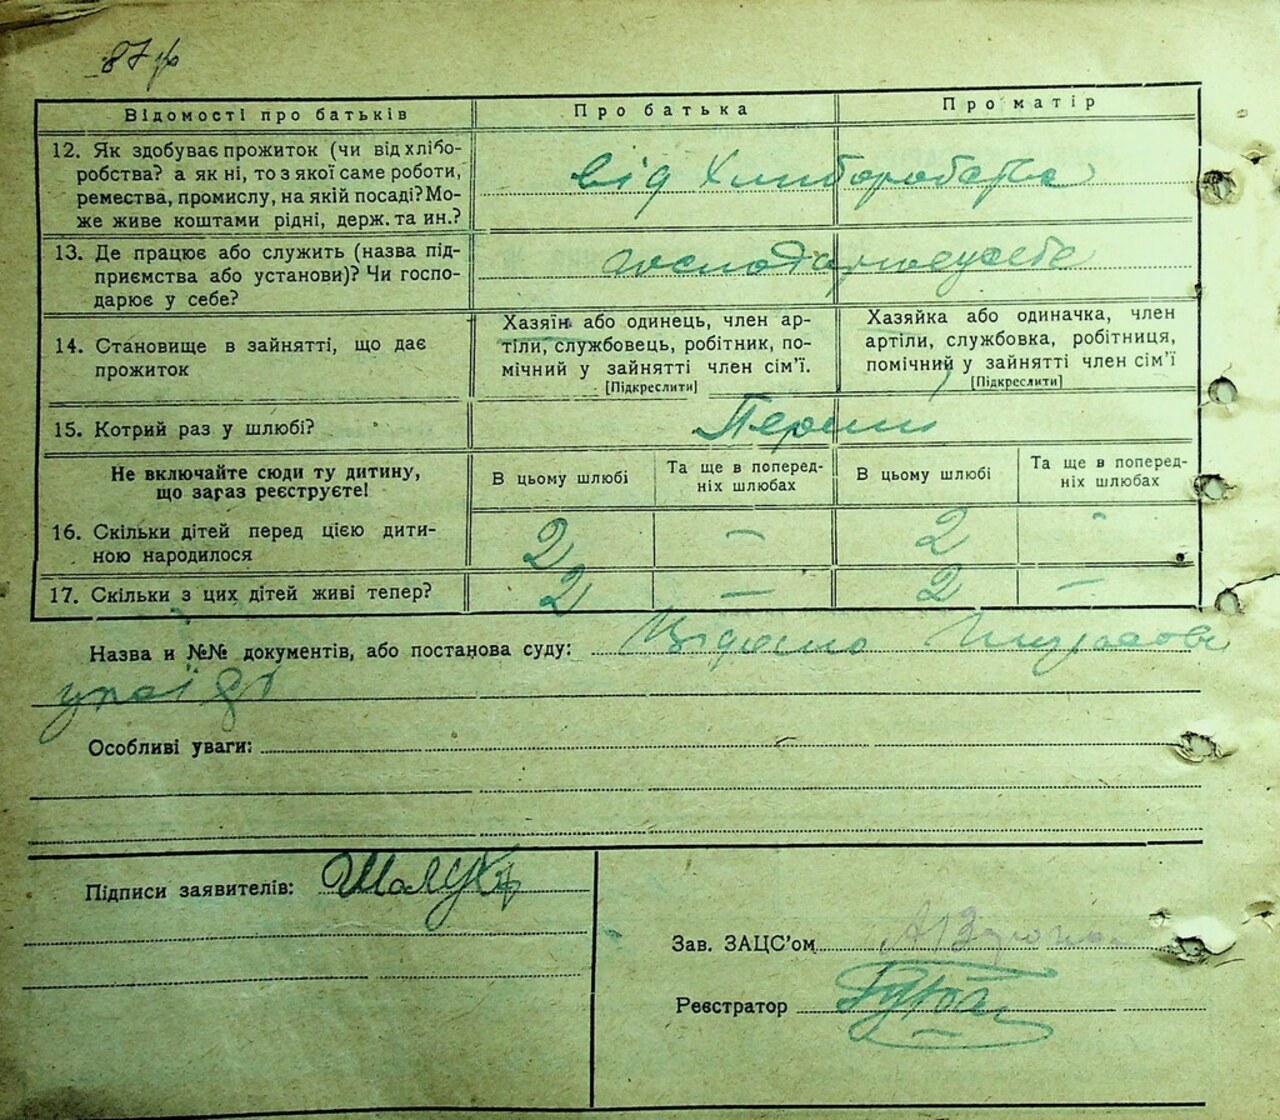 Відомості про батьків
Про батька
Про матір
12. Як здобуває прожиток (чи від хлібо-
робства? а як ні, то з якої саме роботи,
ремества, промислу, на якій посаді? Мо-
же живе коштами рідні, держ. та ин.?
від Хлиборобства
13. Де працює або служить (назва під-
приємства або установи)? Чи госпо-
дарює у себе?
14. Становище в зайнятті, що дає
прожиток
Хазяїн або одинець, член ар-
тіли, службовець, робітник, по-
мічний у зайнятті член сім’ї.
[Підкреслити]
Хазяйка або одиначка, член
артіли, службовка, робітниця,
помічний у зайнятті член сім’ї
[Підкреслити]
15. Котрий раз у шлюбі?
Не включайте сюди ту дитину,
що зараз реєструєте!
В цьому шлюбі
Та ще в поперед-
ніх шлюбах
В цьому шлюбі
Та ще в поперед-
ніх шлюбах
16. Скільки дітей перед цією дити-
ною народилося
2 — 2 -
17. Скільки з цих дітей живі тепер?
2 — 2 —
Назва и №№ документів, або постанова суду:
Особливі уваги:
Підписи заявителів:
Зав. ЗАЦС’ом
Реєстратор